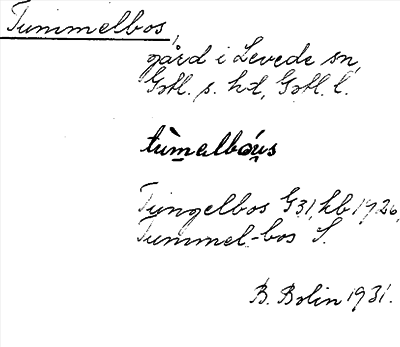 Tummelbos,
gård i Levede sn,
Gotl. s. hd, Gotl. l.
tùmelbóu̯s
Tungelbos G31, kb 1926,
Tummel-bos S.
B. Bolin 1931.